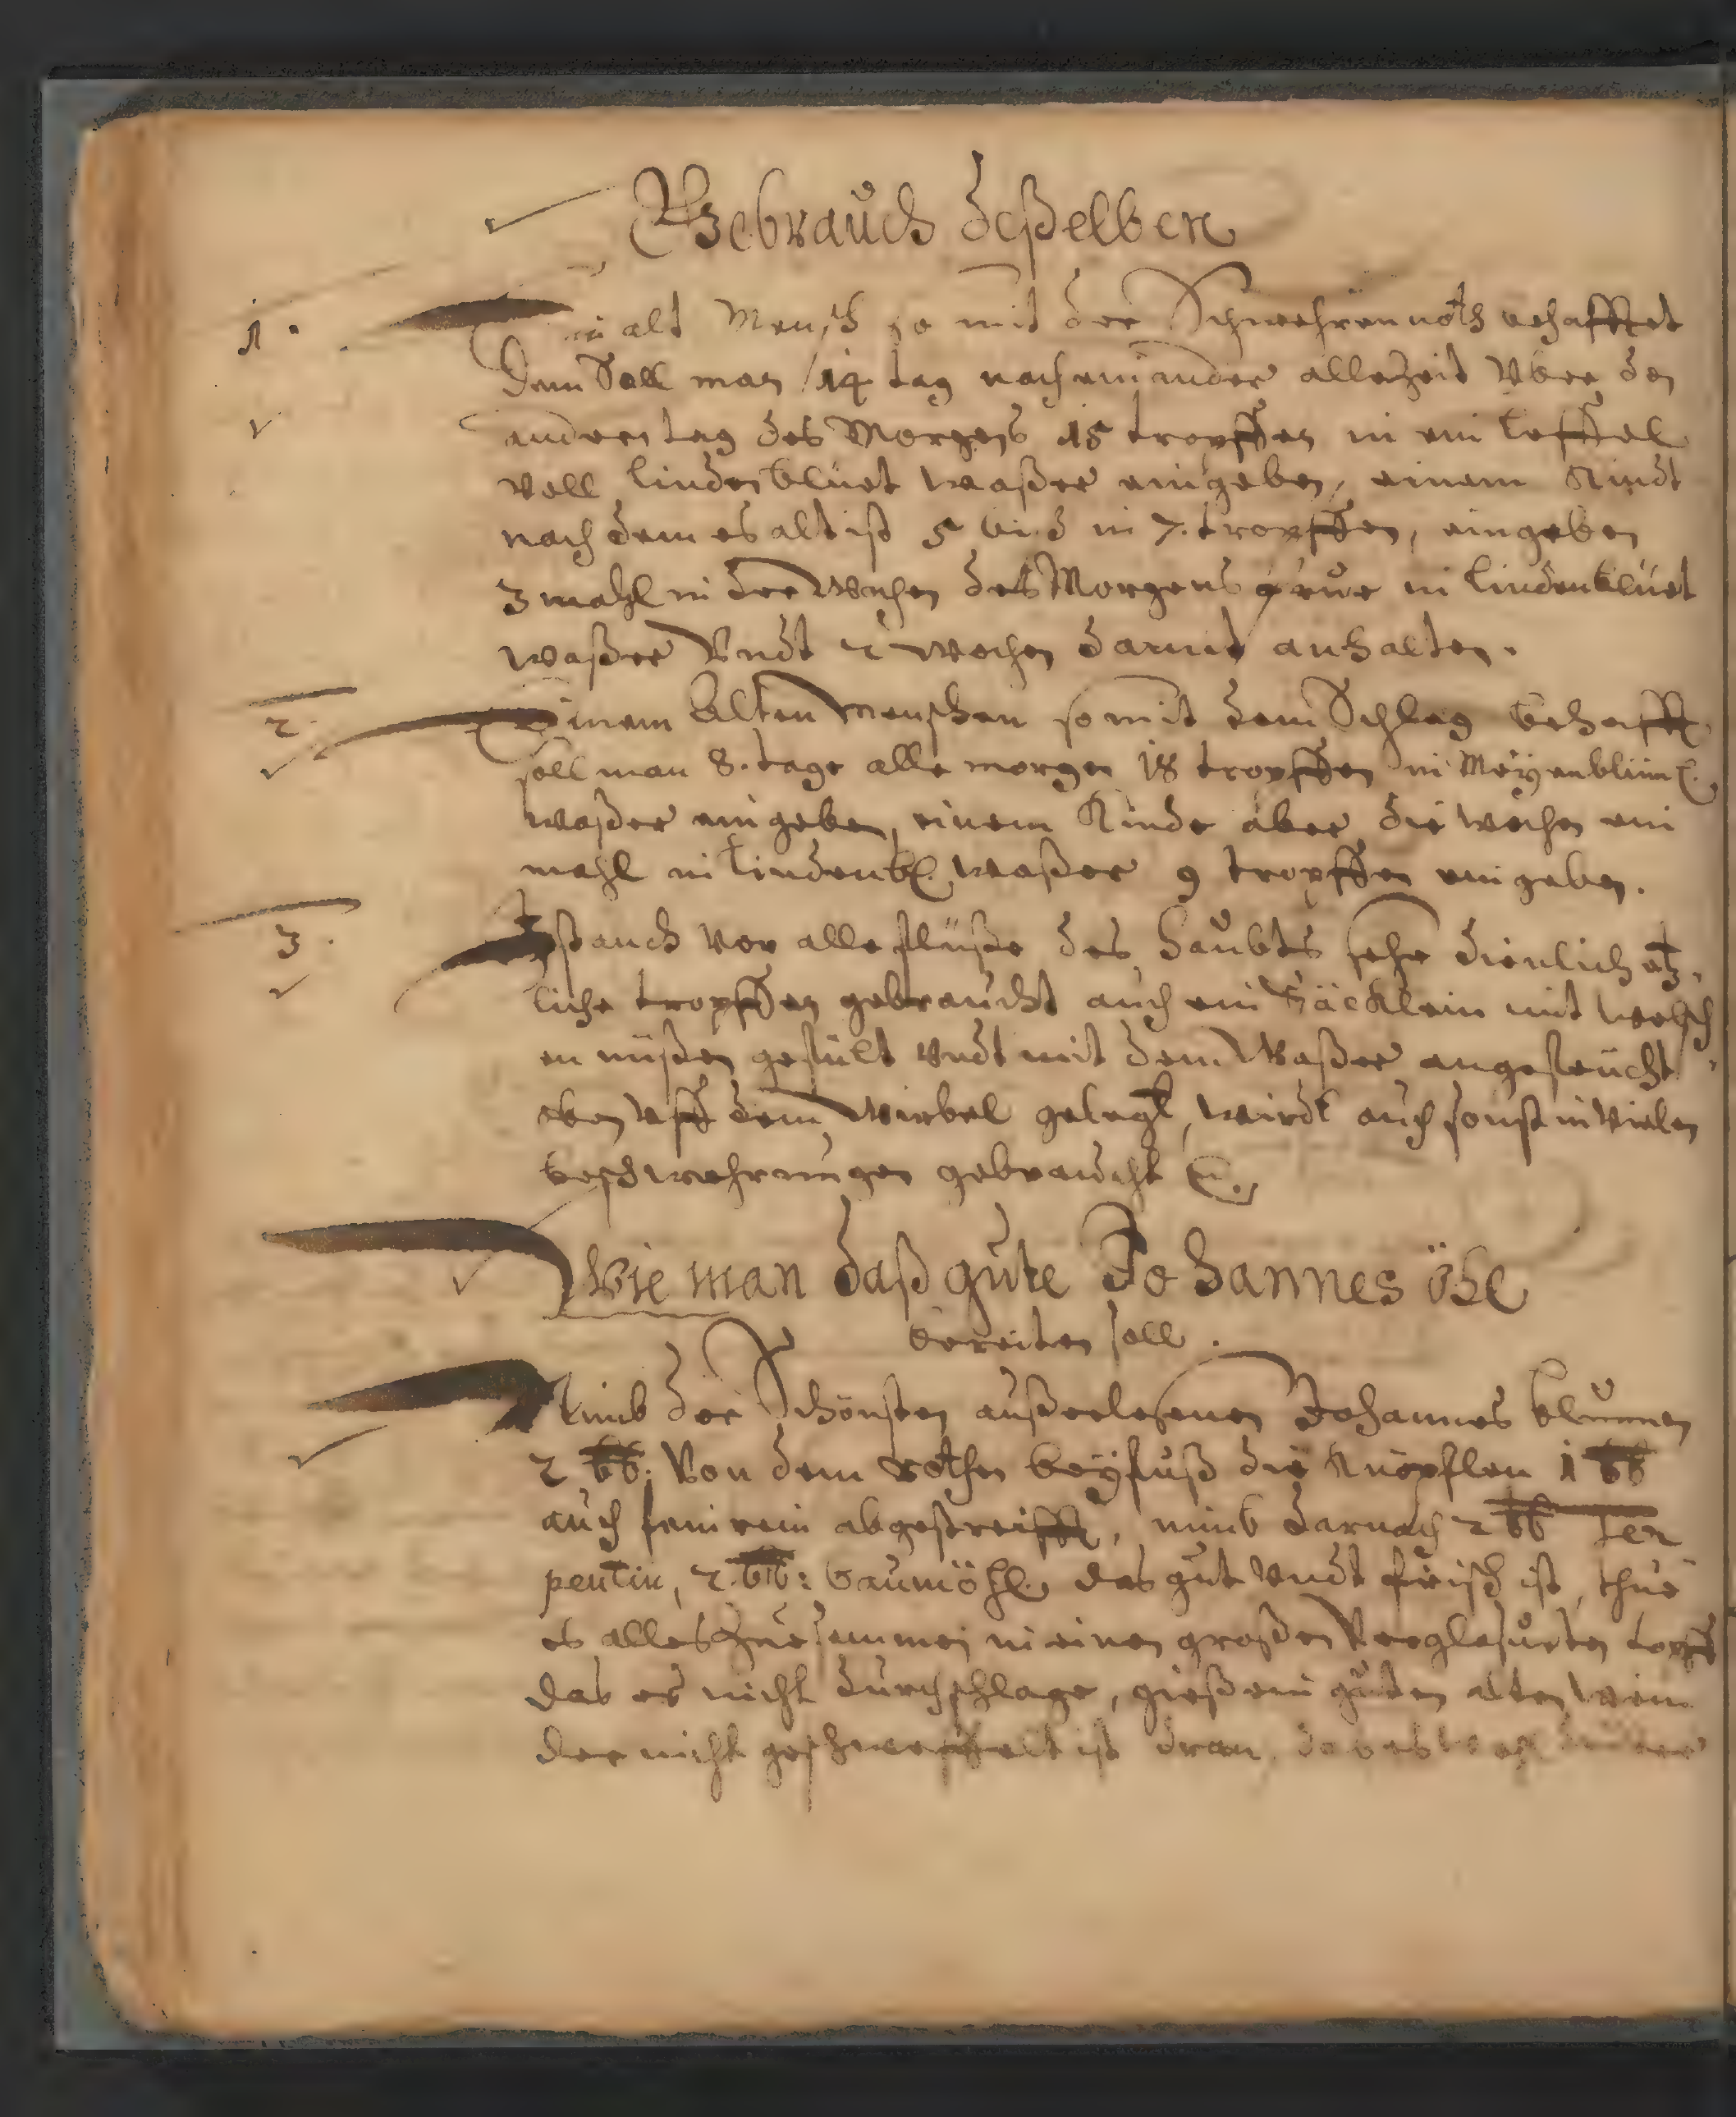 Gebrauch deßelben
1. Ein alt Mensch so mit der Schwehrennoth behafftet
dem Soll man 14 tag nach einander allezeit Vber den
andern tag des Morgens 15 tropffen in ein Leffel
voll Lindenbluet waßer eingeben, einem Kindt
nach dem es alt ist 5 bis in 7. tropffen, eingeben
3 mahl in der Wochen des Morgens frue in Lindenbluet
waßer Vndt 2 wochen darmit anhalten.
2. Einem Alten Menschen so mit dem Schlag behafft
soll man 8. tage alle morgen 18 tropffen in Meyenblüml.
waßer eingeben, einem Kinde aber die wochen ein
mahl in Lindenbl. waßer 9 tropffen eingeben.
3. Ist auch vor alle flüße des Haubts sehr dienlich etz,
liche tropffen gebraucht auch ein Säcklein mit welsch
en nüßen gefült vndt mit dem Waßer angefeucht,
oben vff dem Wirbel gelegt, wirdt auch sonst in vielen
beschwehrungen gebraucht
Wie man daß gute Johannes öhl
bereiten soll.
Nimb der Schönsten außerlesenen Johannes blumen
2 lb. Von dem rothen beyfuß die Knöpflen 1 lb
auch fein rein abgestreifft, nimb darnach 2 lb Ter
pentin, 2. lb: baumöhl. das gut vndt frisch ist, thue
es alles zuesammen in einen großen Verglasurten topff
das es nicht durchschlage, gieß ein guten alten wein
der nicht geschweffelt ist dran, das es